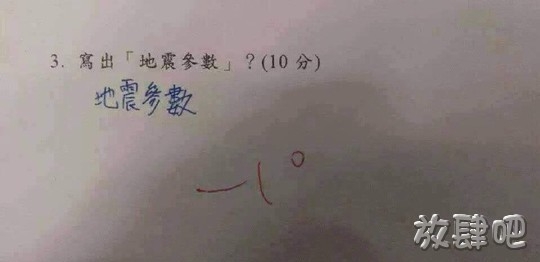 3. 寫出「地震參數」?(10 分)
地震參數
-10
放肆吧